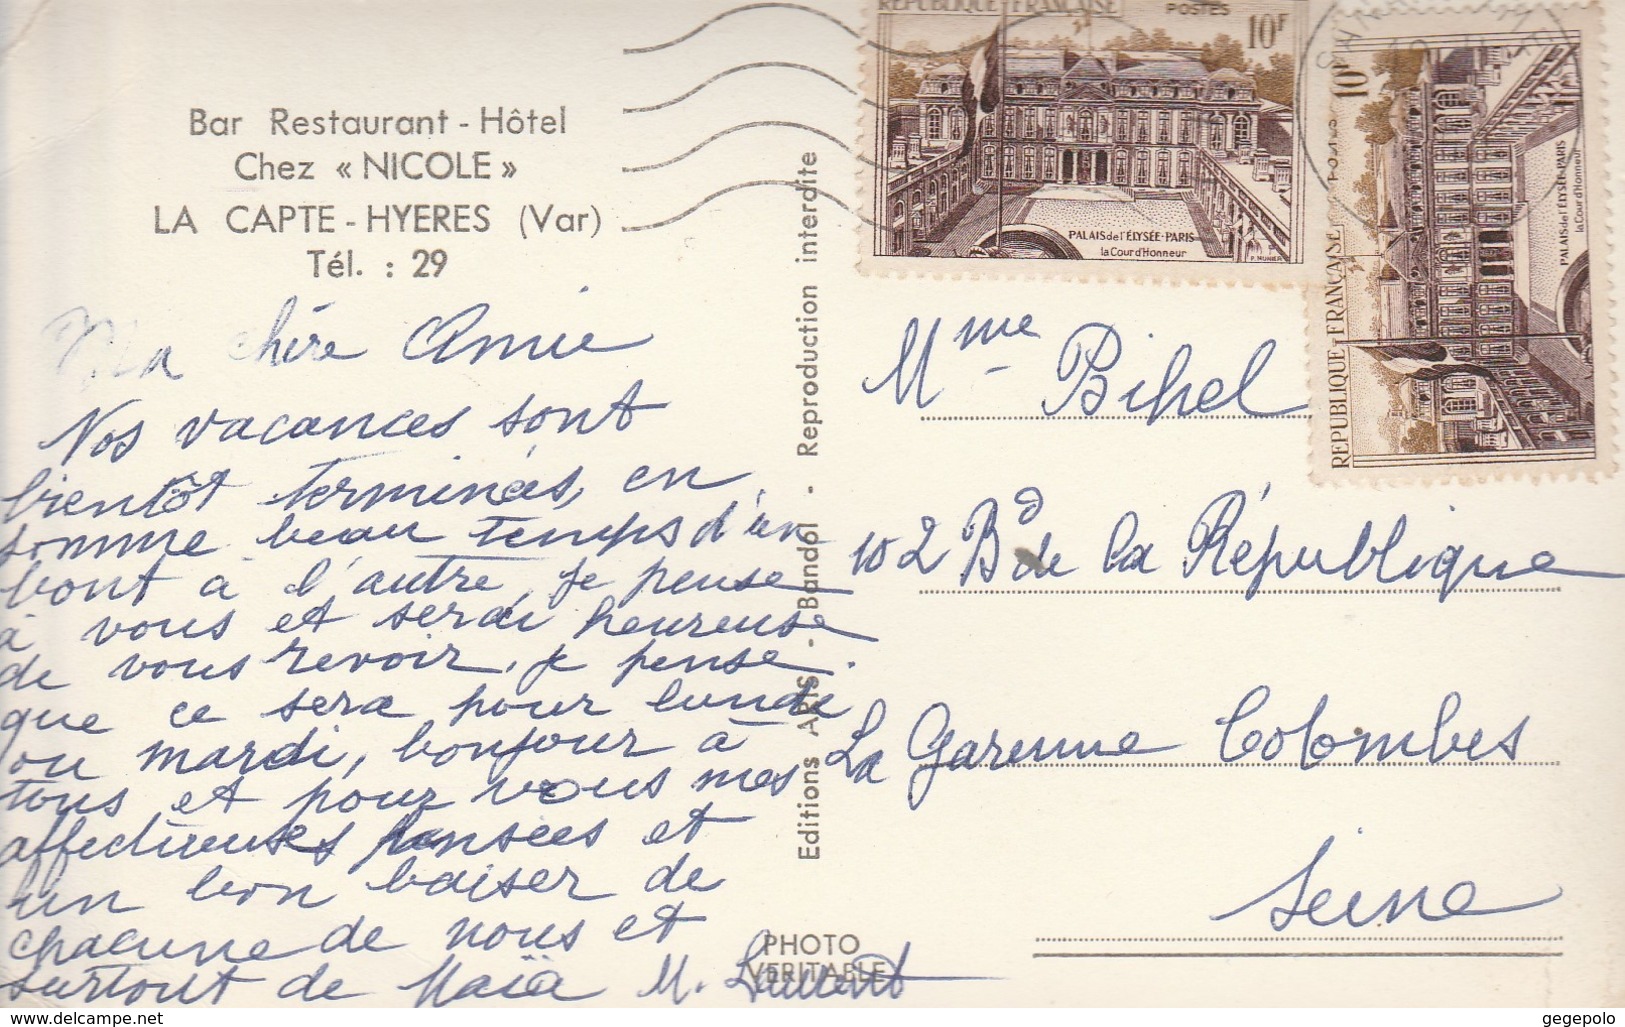 Bar Restaurant - Hôtel
Chez « NICOLE »
LA CAPTE - HYERES (Var)
Tél. : 29
Ma chère Amie
Nos vacances sont
bientôt terminées, en
somme beau temps d'un
bout à l'autre, je pense
à vous et serai heureuse
de vous revoir, je pense
que ce sera pour lundi
ou mardi, bonjour à
tous et pour vous mes
affectueuses pensées et
un bon baiser de
chacune de nous et
surtout de Maïa M.
Editions ARIS - Bandol - Reproduction interdite
PHOTO
VERITABLE
REPUBLIQUE FRANÇAISE POSTES
10F
PALAIS de l'ÉLYSÉE - PARIS
la Cour d'Honneur
P. MUNIER
REPUBLIQUE - FRANÇAISE POSTES
10F
PALAIS de l'ÉLYSÉE - PARIS
la Cour d'Honneur
Mme Bihel
102 Bd de la République
La Garenne Colombes
Seine
www.delcampe.net
gegepolo